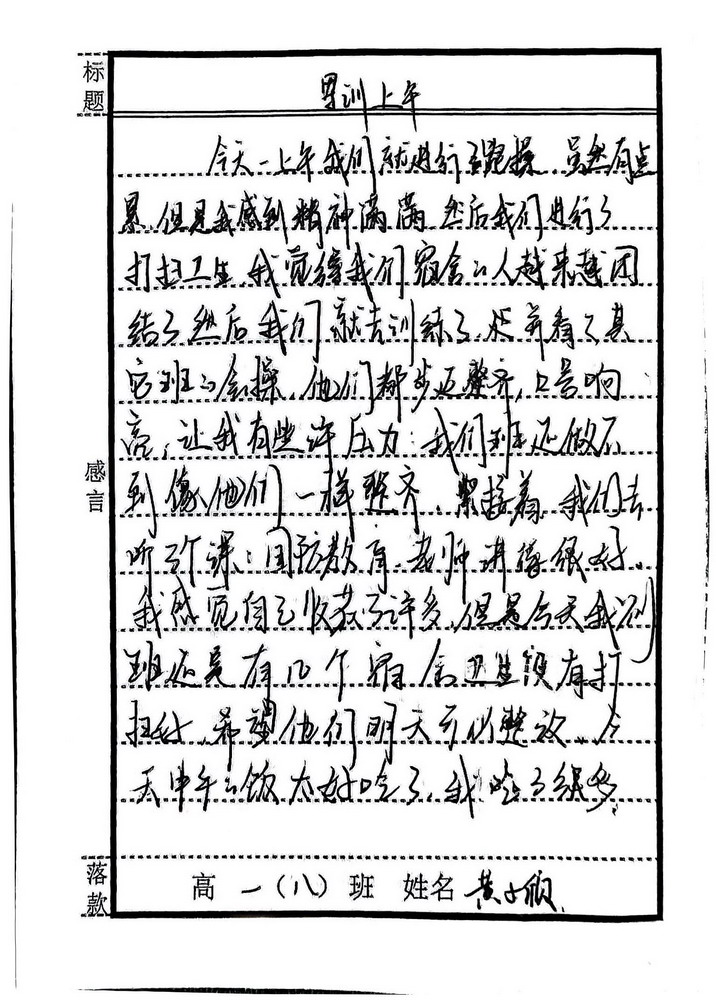 标题
军训上午
今天一上午我们就进行了跑操,虽然有点
累,但是我感到精神满满,然后我们进行了
打扫卫生,我觉得我们宿舍的人越来越团
结了然后我们就去训练了,还看了其
它班的会操,他们都步迈整齐,口号响
亮,让我有些许压力:我们班还做不
到像他们一样整齐,紧接着,我们去
听了课:国防教育,老师讲得很好,
我感觉自己收获了许多,但是今天我们
班还是有几个宿舍卫生没有打
扫好,希望他们明天可以整改,今
天中午的饭太好吃了,我吃了很多。
感言
落款
高一(八)班 姓名 黄